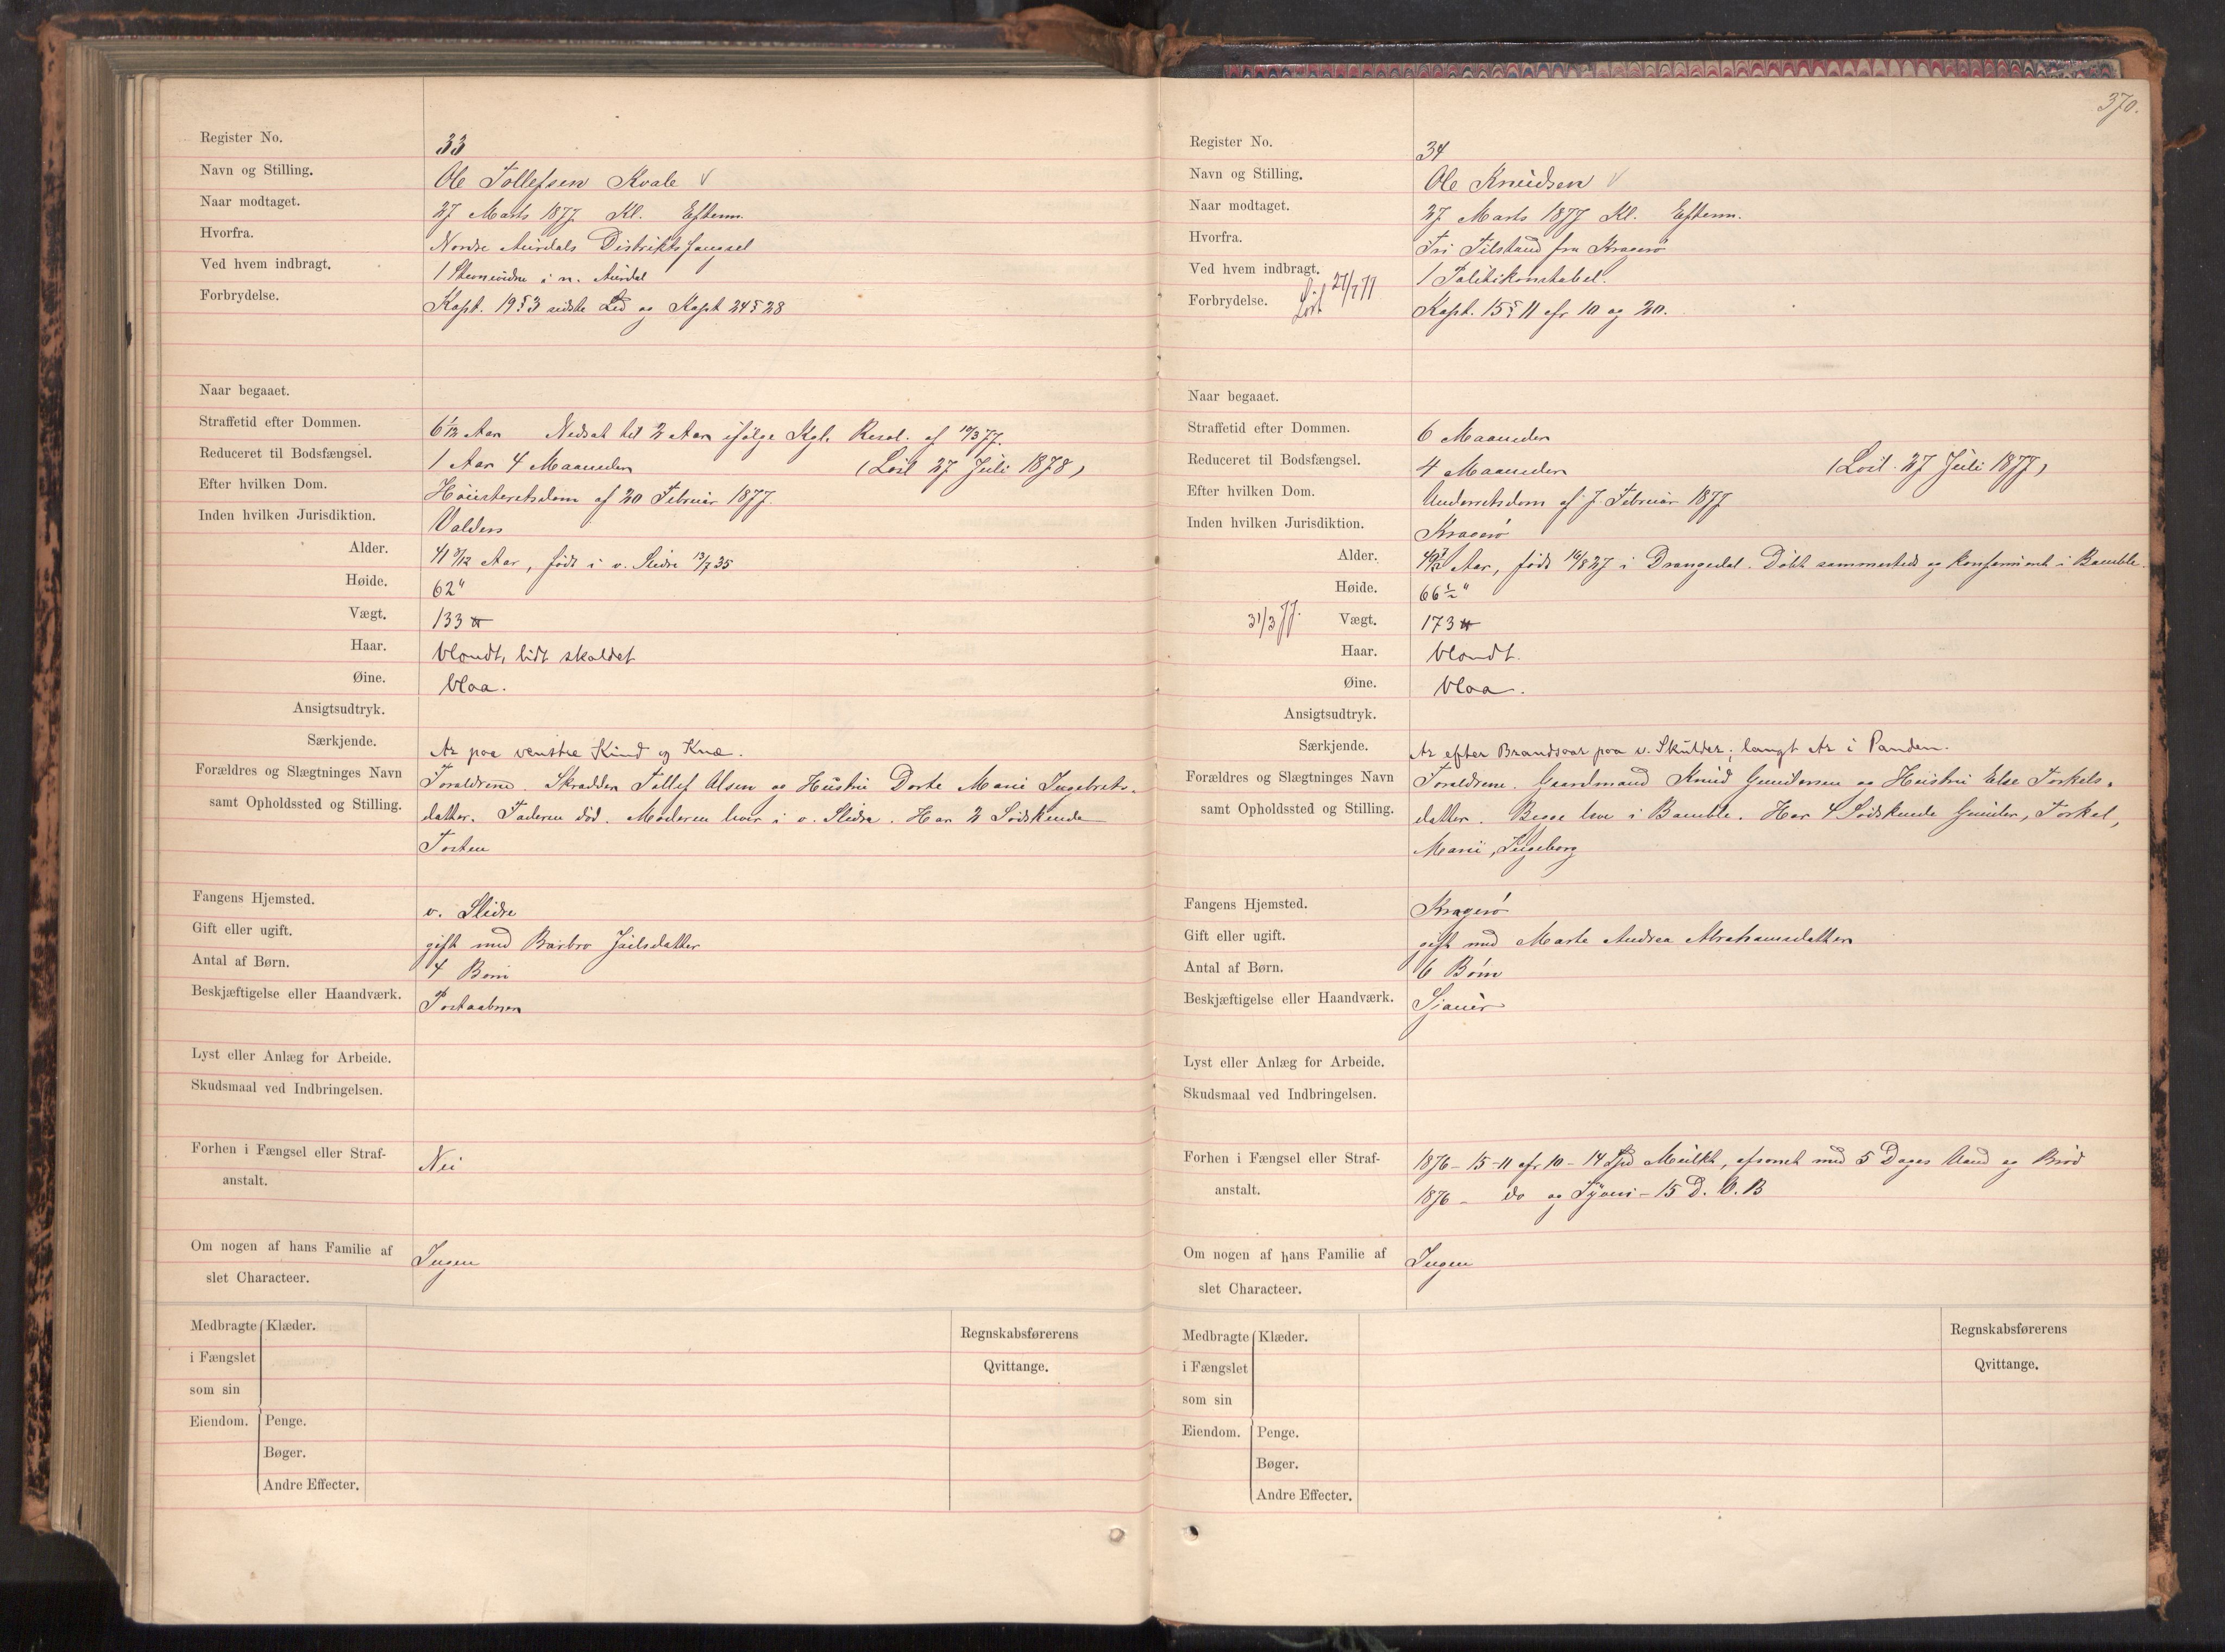 Register No. 33
Navn og Stilling. Ole Tollefsen Kvale √
Naar modtaget. 27 Marts 1877 Kl. Efterm.
Hvorfra. Nordre Aurdals Distriktsfængsel
Ved hvem indbragt. 1 Stevnevidne i n. Aurdal
Forbrydelse. Kapt. 19 § 3 sidste Led og Kapt 24 § 28
Naar begaaet.
Straffetid efter Dommen. 6 1/12 Aar Nedsat til 2 Aar ifølge Kgl. Resol. af 17/3 77.
Reduceret til Bodsfængsel. 1 Aar 4 Maaneder (Løsl 27 Juli 1878)
Efter hvilken Dom. Høiesteretsdom af 20 Februar 1877.
Inden hvilken Jurisdiktion. Valders
Alder. 41 8/12 Aar, født i v. Slidre 13/7 35
Høide. 62"
Vægt. 133 ℔
Haar. blondt, lidt skaldet
Øine. blaa.
Ansigtsudtryk.
Særkjende. Ar paa venstre Kind og Knæ.
Forældres og Slægtninges Navn Forældrene. Skrædder Tollef Olsen og Hustru Dorte Marie Ingebrets-
samt Opholdssted og Stilling. datter. Faderen død. Moderen lever i v. Slidre. Har 2 Sødskende
Tosten
Fangens Hjemsted. v. Slidre
Gift eller ugift. gift med Barbro Juilsdatter
Antal af Børn. 4 Børn
Beskjæftigelse eller Haandværk. Postaabner
Lyst eller Anlæg for Arbeide.
Skudsmaal ved Indbringelsen.
Forhen i Fængsel eller Straf- Nei
anstalt.
Om nogen af hans Familie af Ingen
slet Characteer.
Medbragte Klæder.
i Fængslet
som sin
Eiendom. Penge.
Bøger.
Andre Effecter.
Regnskabsførerens
Qvittange.
370.
Register No. 34
Navn og Stilling. Ole Knudsen √
Naar modtaget. 27 Marts 1877 Kl. Efterm.
Hvorfra. Fri Tilstand fra Kragerø
Ved hvem indbragt. 1 Politikonstabel.
Forbrydelse. Løsl 27/7 77 Kapt. 15 § 11 cfr 10 og 20.
Naar begaaet.
Straffetid efter Dommen. 6 Maaneder
Reduceret til Bodsfængsel. 4 Maaneder (Løsl. 27 Juli 1877)
Efter hvilken Dom. Underretsdom af 7 Februar 1877
Inden hvilken Jurisdiktion. Kragerø
Alder. 49 7/12 Aar, født 16/8 27 i Drangedal. Døbt sammesteds og konfirmeret i Bamble.
Høide. 66 1/2"
31/3 77. Vægt. 173 ℔
Haar. blondt.
Øine. blaa.
Ansigtsudtryk.
Særkjende. Ar efter Brandsaar paa v. Skulder; langt Ar i Panden.
Forældres og Slægtninges Navn Forældrene. Gaardmand Knud Gundersen og Hustru Else Torkels-
samt Opholdssted og Stilling. datter. Begge leve i Bamble. Har 4 Sødskende Gunder, Torkel,
Marie, Ingeborg
Fangens Hjemsted. Kragerø
Gift eller ugift. gift med Marte Andrea Abrahamsdatter
Antal af Børn. 6 Børn
Beskjæftigelse eller Haandværk. Sjauer
Lyst eller Anlæg for Arbeide.
Skudsmaal ved Indbringelsen.
Forhen i Fængsel eller Straf- 1876 - 15-11 cfr 10 - 14 Spd Mulkt, afsonet med 5 Dages Vand og Brød
anstalt. 1876 - do og Tyveri - 15 D. V. B
Om nogen af hans Familie af Ingen
slet Characteer.
Medbragte Klæder.
i Fængslet
som sin
Eiendom. Penge.
Bøger.
Andre Effecter.
Regnskabsførerens
Qvittange.